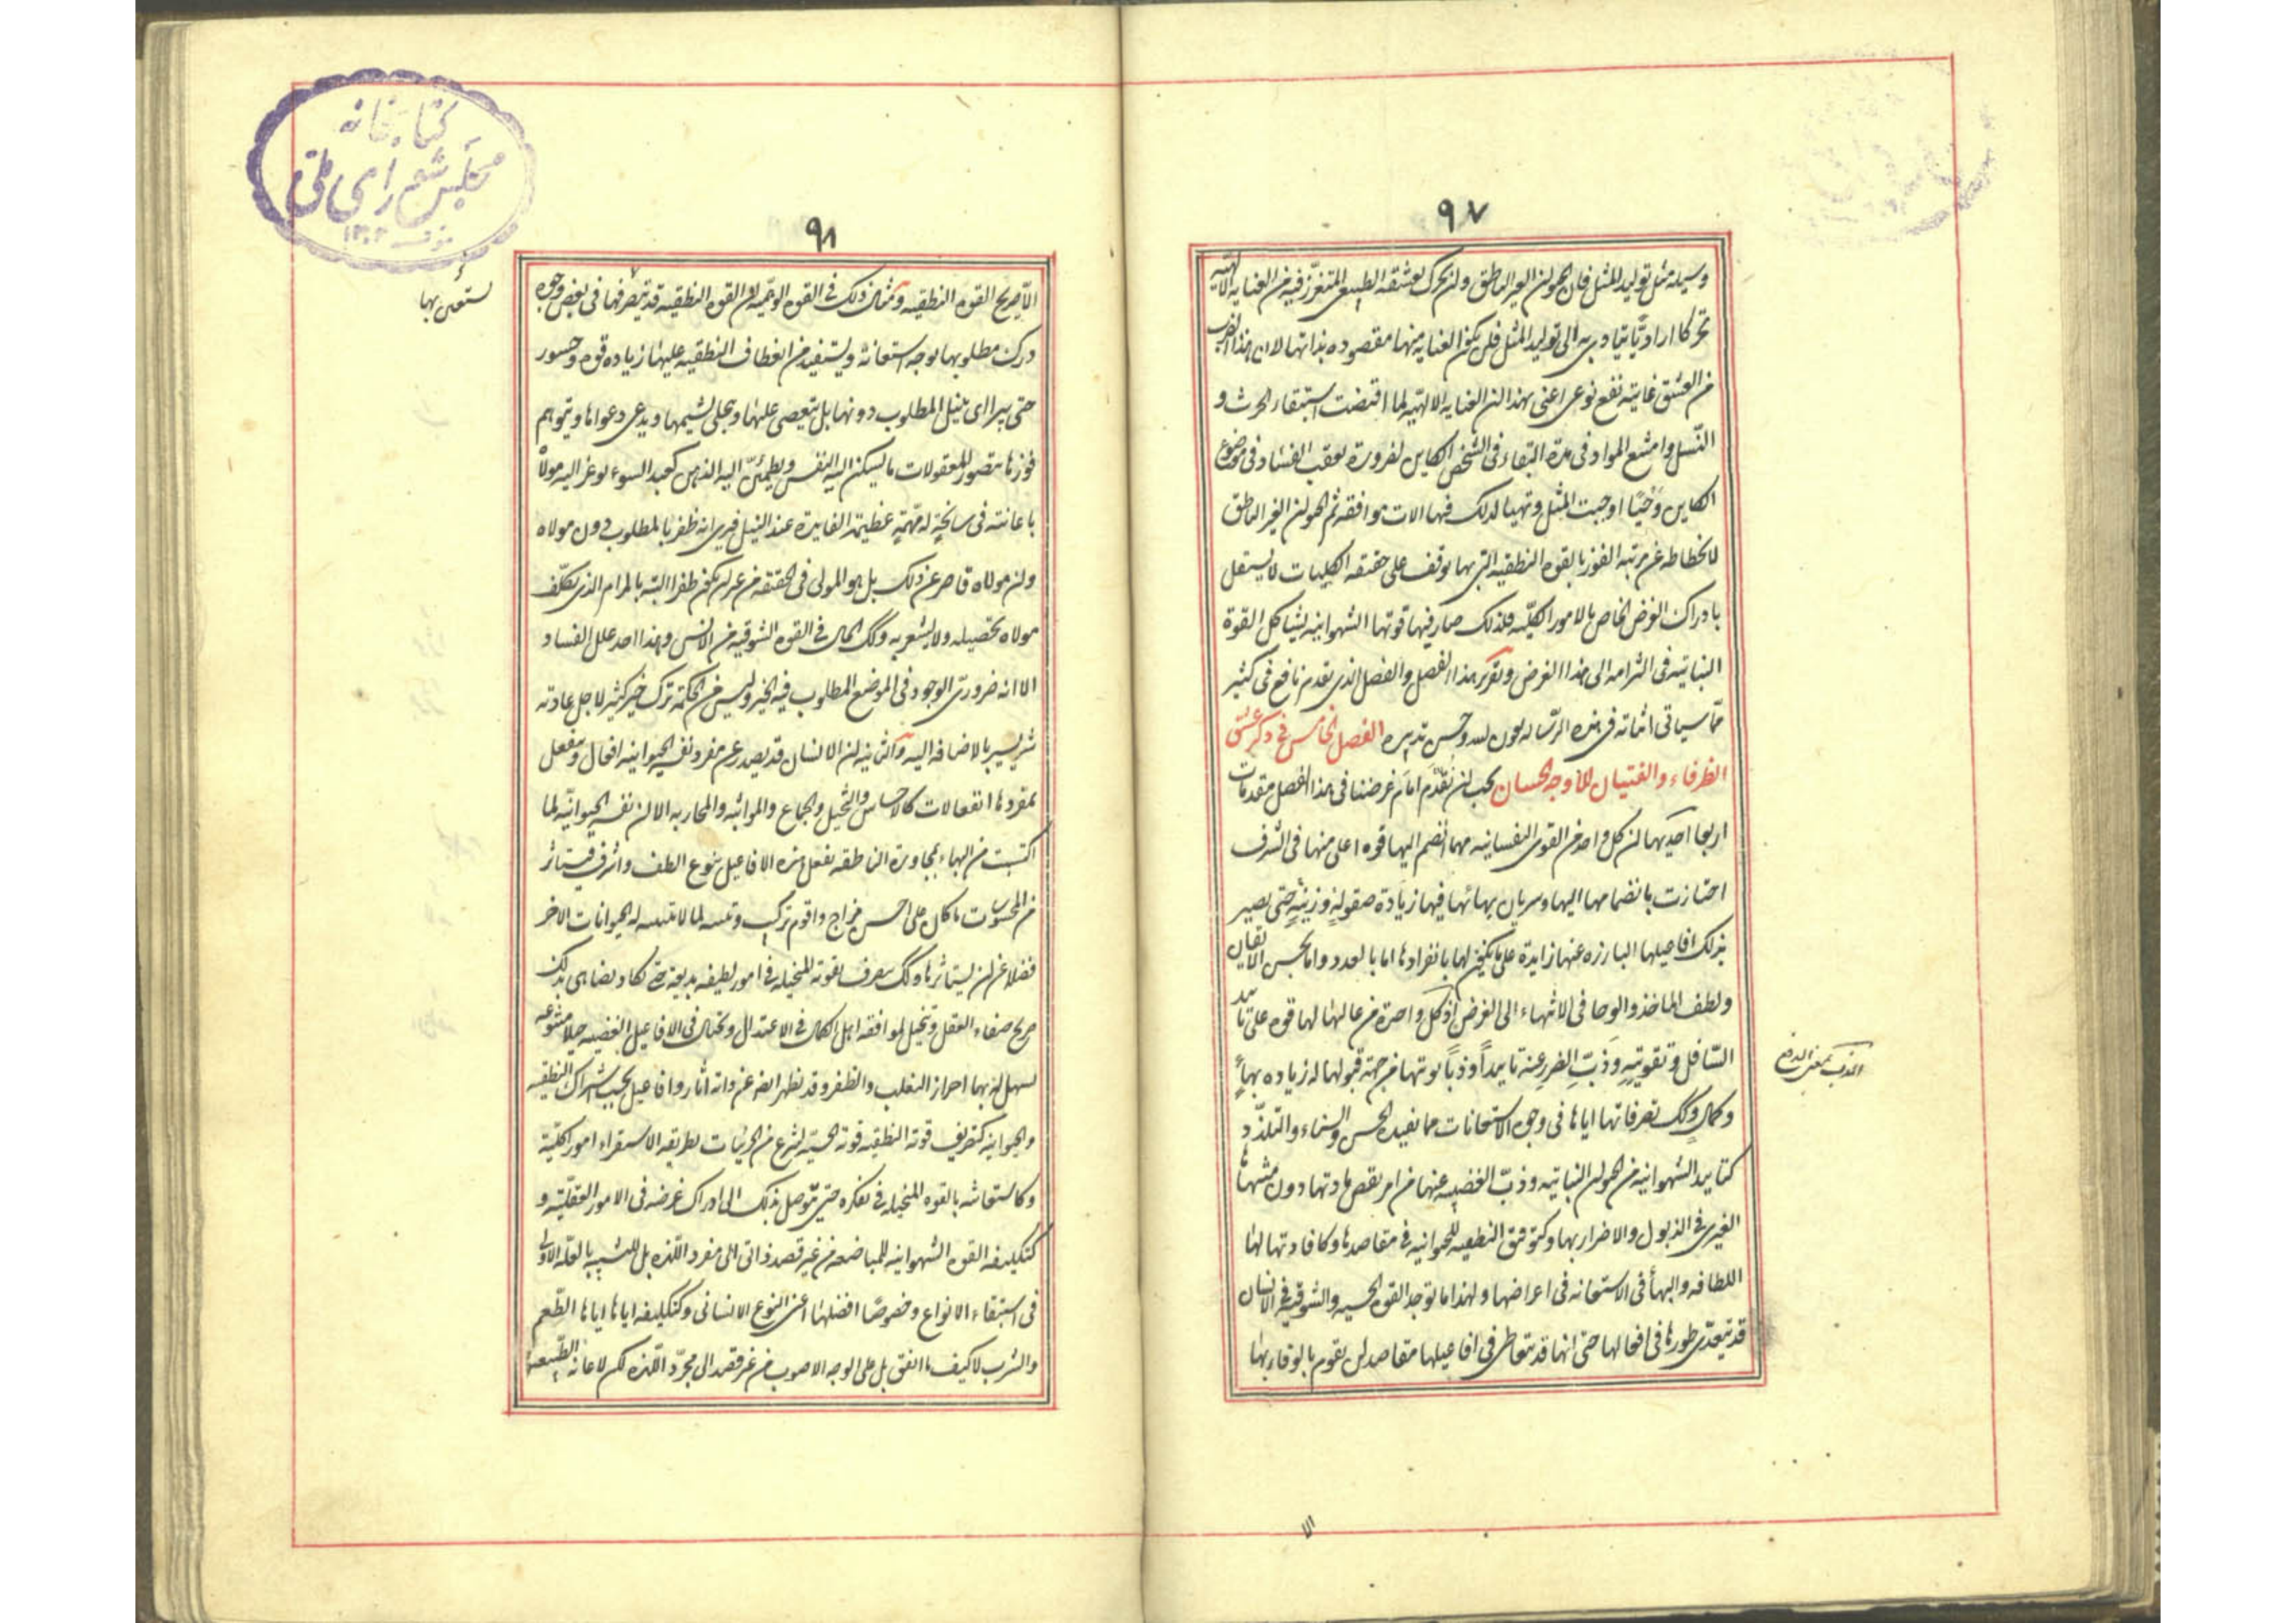 ٩٧
وسيله مثل توليد المثل فان الحيوان الغير الناطق وان تحرك بعشقه الطبيعى المتغرز فيه من العنايه الالهيّه
تحركا اراديّا يتادى به الى توليد المثل فلن يكون العنايه منها مقصوده بذاتها لان هذا الضرب
من العشق غايته نفع نوعى اعنى بهذا ان العنايه الالهيّه لما اقتضت استبقاء الحرث و
النّسل وامتنع المراد فى مدة البقاء فى الشخص الكاين لضرورة تعقب الفساد فى موضوع
الكاين اوجبت المثل وتهيا لذلك فيها الات موافقه ثم الحيوان الغير الناطق
لانحطاطه عن مرتبه الفوز بالقوه النطقيه التى بها يوقف على حقيقه الكليات لا يستقل
بادراك الغرض الخاص بالامور الكليّه فلذلك صار فيها قوتها الشهوانيه يشاكل القوة
النباتيه فى التزامه الى هذا الغرض وتقرير هذا الفصل والفصل الذى تقدم نافع فى كثير
ممّا سياتى اثباته فى هذه الرّساله بعون الله وحسن تدبيره الفصل الخامس فى ذكر عشق
الظرفاء والفتيان للاوجه الحسان يجب ان نقدّم امام غرضنا فى هذا الفصل مقدمات
اربعا احديها ان كل واحد من القوى النفسانيه مهما انضم اليها قوه اعلى منها فى الشرف
احتازت بانضمامها اليها وسريان بهائها فيها زيادة صقولةٍ وزينةٍ حتى يصير
بذلك افاعيلها البارزه عنها زايدة على ما يكون لها بانفرادها اما بالعدد واما بحسن الاتقان
ولطف الماخذ والوحا فى الانتهاء الى الغرض اذ كل واحدة من عاليها لها قوه على تاييد
السّافل وتقويتهِ وذبّ الضرر عنه تاييداً وذبّاً يوتيها من جهة قبولها له زياده بهاءٍ
وكمال وكذلك تصرفاتها اياها فى وجوه الاستعانات مما يفيده الحسن والسناء والتلذّذ
كتاييد الشهوانيه من الحيوان النباتيه وذبّ الغضبيه عنها من امر يقصر مادتها دون منتهاها
الغيرى فى الذبول والاضرار بها وكتوفيق النطقيه للحيوانيه فى مقاصدها وكافادتها لها
اللطافه والبهاء فى الاستعانه فى اغراضها ولهذا ما توجد القوه الحسيه والشوقيه فى الانسان
قد تتعدّى طورها فى افعالها حتى انها قد تتعاطى فى افاعيلها مقاصد لن يقوم بالوفاء بها
الذب بمعنى الدفع
الا
٩٨
الا صريح القوه النطقيه ومثال ذلك فى القوه الوهميّه ان القوه النطقيه قد تصرفها فى بعض وجوه
درك مطلوبها بوجه استعانة ويستفيد من انعطاف النطقيه عليها زياده قوه وجسور
حتى يتراأى بنيل المطلوب دونها بل يتعصى عليها ويتحلى بشيمها ويدعى دعواها ويتوهم
فوزها بتصور المعقولات ما يسكن اليه النفس ويطمئنّ اليه الذهن كعبد السوء يوعز اليه مولاه
باعانته فى سانحةٍ له مهمّةٍ عظيمة الفايدة عند النيل فيرى انه ظفر بالمطلوب دون مولاه
وان مولاه قاصر عن ذلك بل هو المولى فى الحقيقه من غير ان يكون ظفر البته بالمرام الذى يكلّف
مولاه تحصيله ولا يشعر به وكذلك الحال فى القوه الشوقيه من الانس وهذا احد علل الفساد
الا انه ضرورىّ الوجود فى الموضع المطلوب فيه الخير وليس من الحكمة ترك خير كثير لاجل عاديه
شر يسير بالاضافه اليه والثانيه ان الانسان قد يصدر عن مفرد نفسه الحيوانيه افعال وينفعل
بمفردها انفعالات كالاحساس والتخيل والجماع والمواثبه والمحاربه الا ان نفسه الحيوانيّه لما
اكتسبت من البهاء بمجاورة الناطقه يفعل هذه الافاعيل بنوع الطف واشرف فيستاثر
من المحسوسات ما كان على احسن مزاج واقوم تركيب ونسبه لما لا يتنبه له الحيوانات الاخر
فضلا عن ان يستاثرها وكذلك يصرف بقوته المتخيله فى امور لطيفه بديعه حتى تكاد يضاهى بذلك
صريح صفاء العقل ويتخيل لموافقه اهل الكمال فى الاعتدال ويحتال فى الافاعيل الغضبيه حيلا متنوعه
يسهل له بها احراز التغلب والظفر وقد تظهر ايضا عن ذاته اثار وافاعيل بحسب اشتراك النطقيه
والحيوانيه كتصريف قوته النطقيه قوته الحسيّه لينتزع من الجزئيات بطريقه الاستقراء امور اكليّة
وكاستعانته بالقوه المتخيله فى تفكره حتى يتوصل بذلك الى ادراك غرضه فى الامور العقليّه و
كتكليفه القوه الشهوانيه المباضعه من غير قصد ذاتى الى مفرد اللّذه بل للتشبه بالعلّه الاولى
فى استبقاء الانواع وخصوصًا افضلها اعنى النوع الانسانى وكتكليفه اياها اياها الطّعم
والشرب لا كيف ما اتفق بل على الوجه الاصوب من غير قصد الى مجرّد اللّذه لكن لاعانة الطّبيعه
يستعين بها
كتابخانه
مجلس شوراى ملى